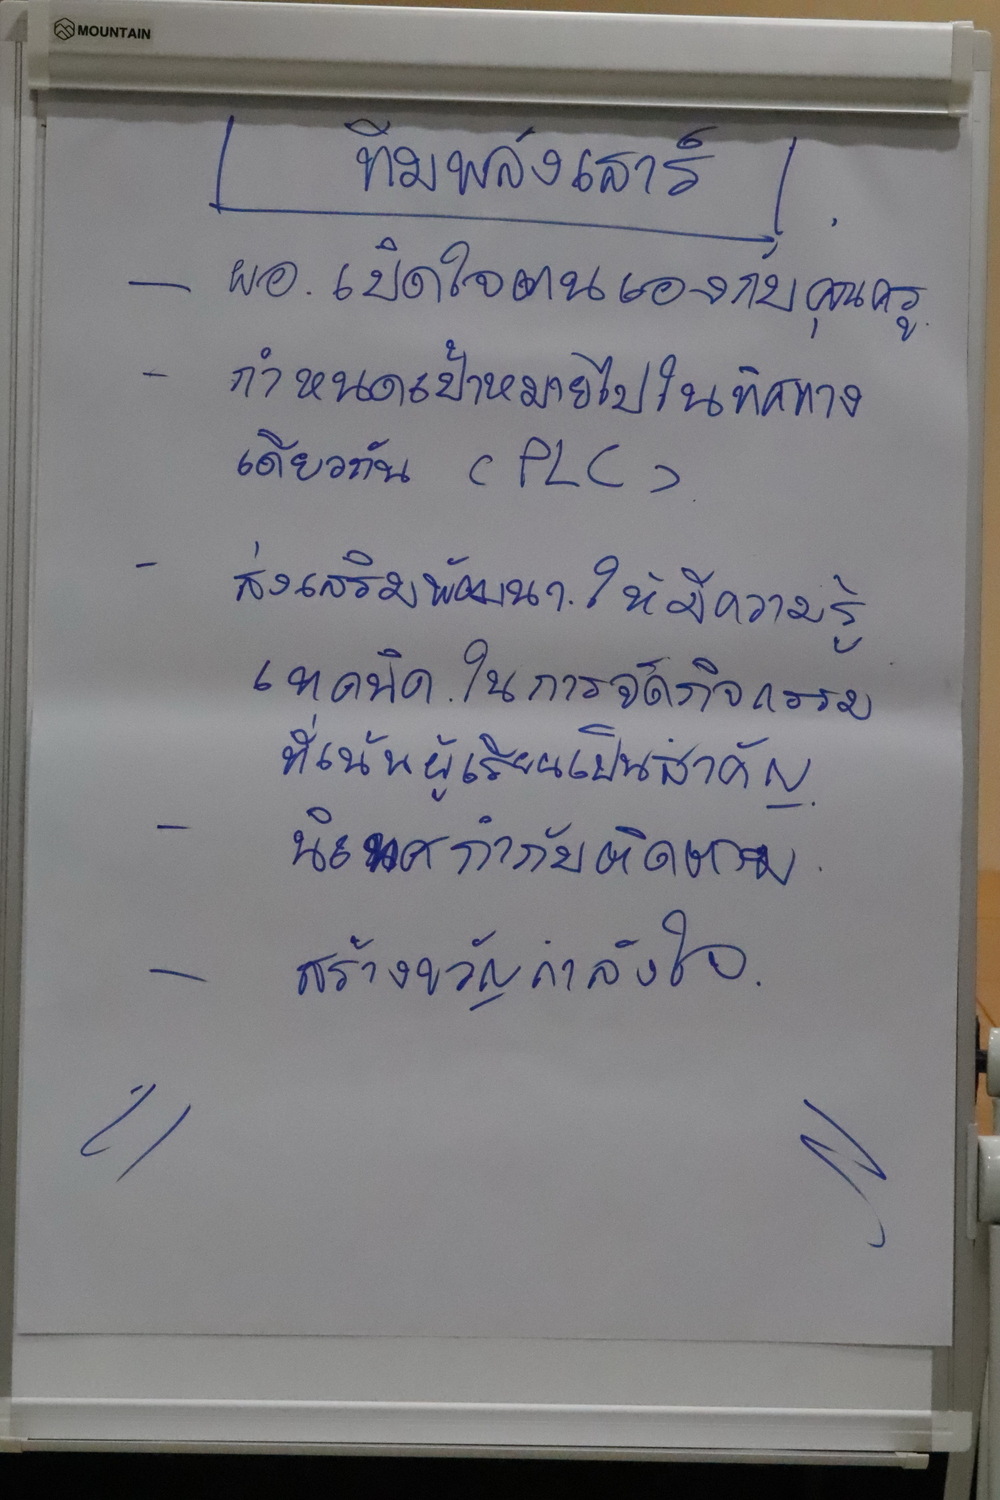 MOUNTAIN
ทีมพลังเสาร์
- ผอ. เปิดใจตนเองกับคุณครู
- กำหนดเป้าหมายไปในทิศทาง
เดียวกัน (PLC)
- ส่งเสริมพัฒนา. ให้มีความรู้
เทคนิค. ในการจัดกิจกรรม
ที่เน้นผู้เรียนเป็นสำคัญ.
- นิเทศกำกับติดตาม.
- สร้างขวัญกำลังใจ.